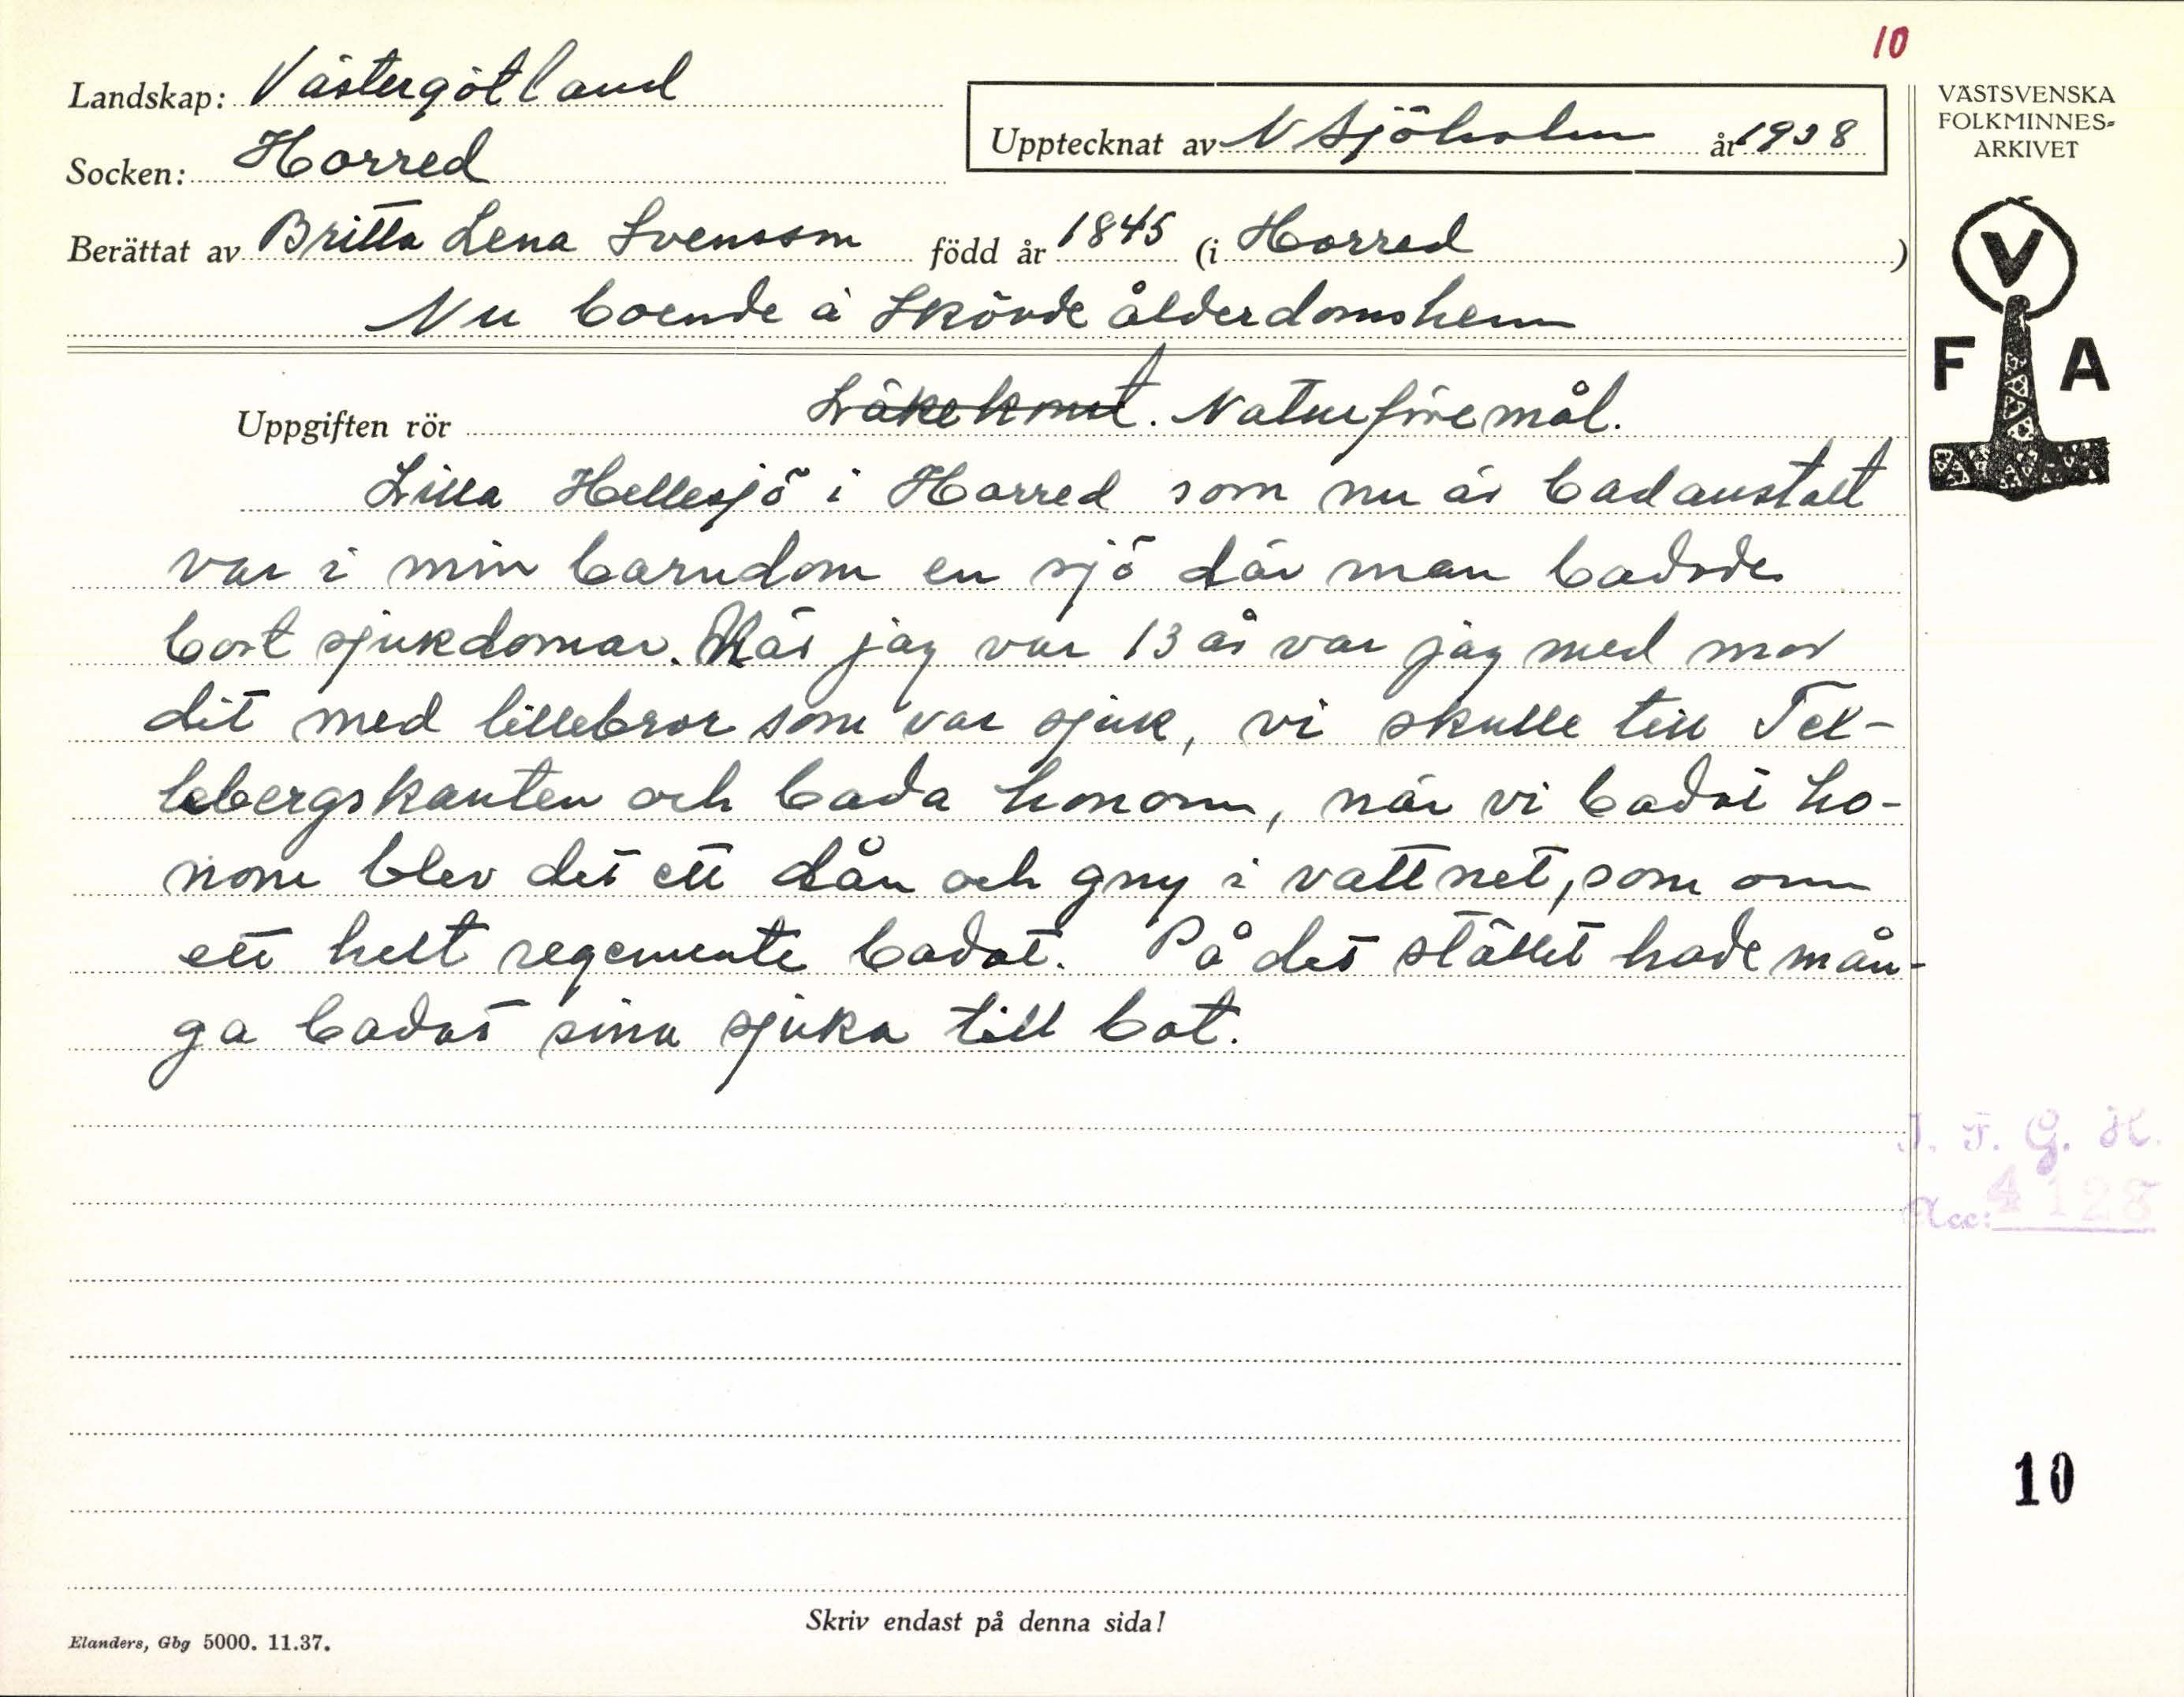 10
Landskap: Västergötland
Socken: Horred
Upptecknat av N Sjöholm år 1938
VÄSTSVENSKA
FOLKMINNES-
ARKIVET
Berättat av Britta Lena Svensson född år 1845 (i Horred )
Nu boende å Skövde ålderdomshem
V
F A
Uppgiften rör Läkekonst. Naturföremål.
Lilla Hellesjö i Horred som nu är badanstalt
var i min barndom en sjö där man badade
bort sjukdomar. När jag var 13 år var jag med mor
dit med lillebror som var sjuk, vi skulle till Tel-
lebergskanten och bada honom, när vi badat ho-
nom blev det ett dån och gny i vattnet, som om
ett helt regemente badat. På det stället hade mån-
ga badat sina sjuka till bot.
I. F. G. H.
Acc: 4128
10
Skriv endast på denna sida!
Elanders, Gbg 5000. 11.37.